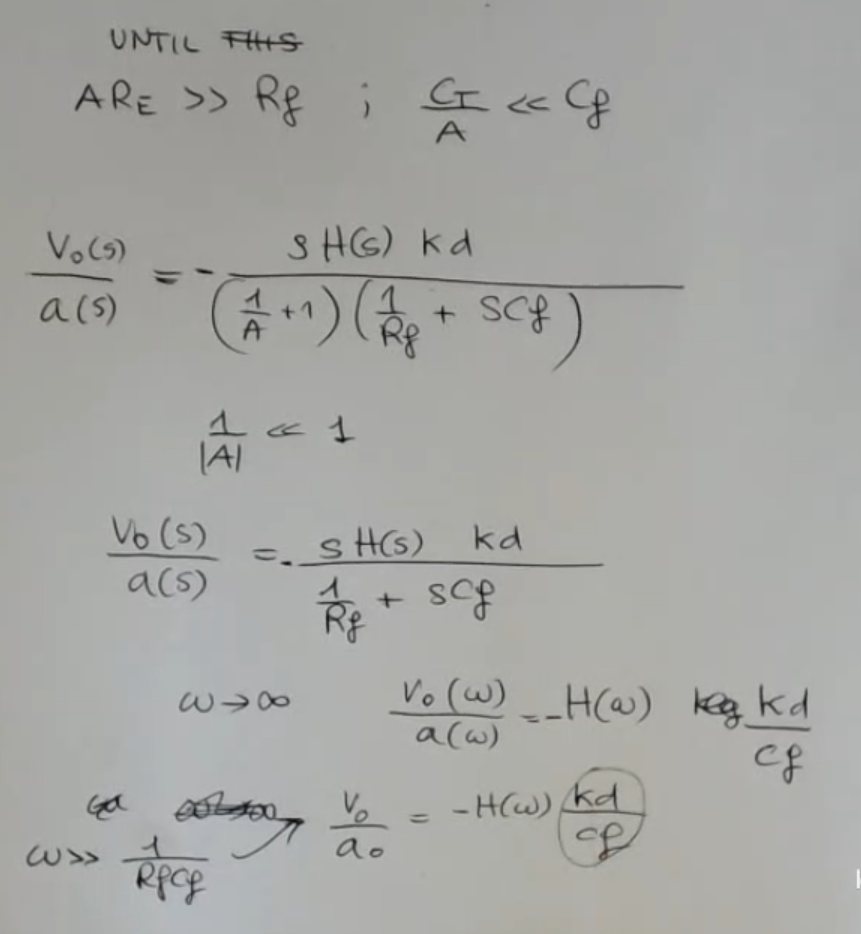 UNTIL
AR_E >> Rf ; C_I/A << Cf
V_o(s)/a(s) = - s H(s) kd / ((1/A + 1)(1/Rf + sCf))
1/|A| << 1
V_o(s)/a(s) = - s H(s) kd / (1/Rf + sCf)
ω → ∞ V_o(ω)/a(ω) = -H(ω) kd/Cf
ω >> 1/(RfCf) V_o/a_o = -H(ω) kd/Cf